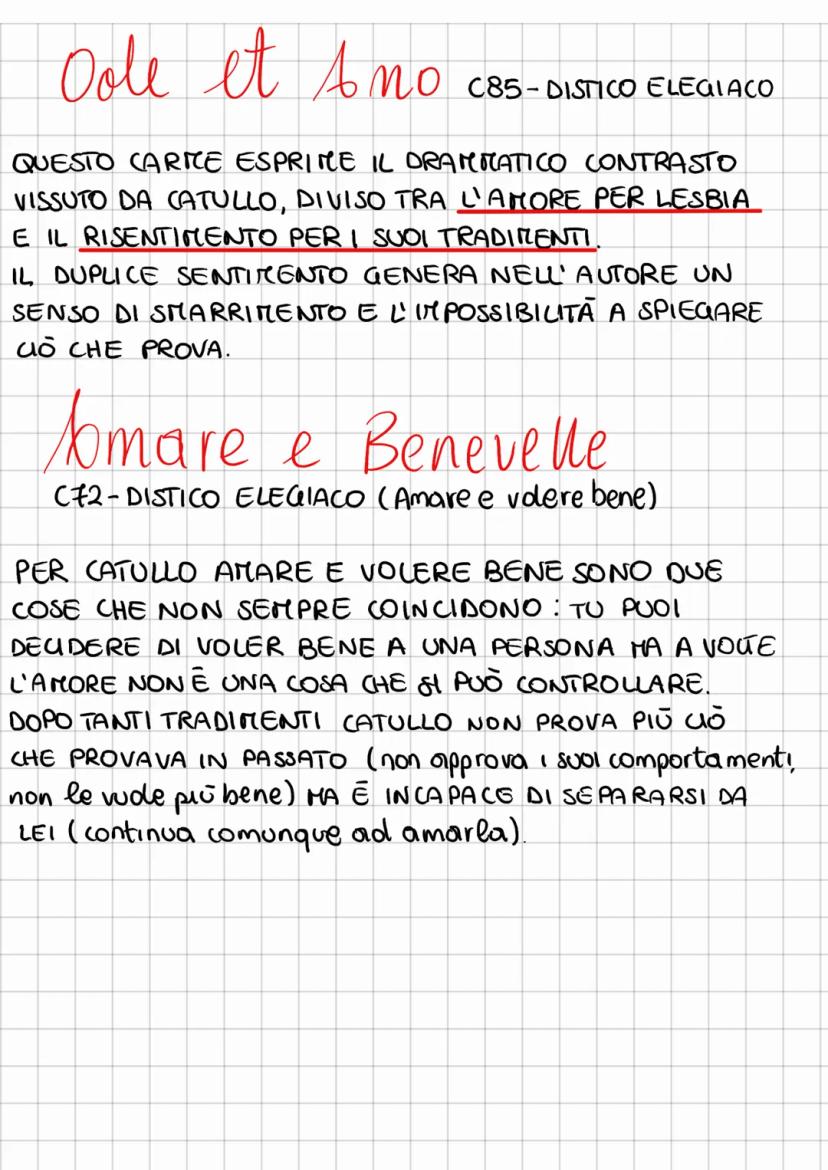 Ode et Amo C85 - DISTICO ELEGIACO
QUESTO CARME ESPRIME IL DRAMMATICO CONTRASTO
VISSUTO DA CATULLO, DIVISO TRA L'AMORE PER LESBIA
E IL RISENTIMENTO PER I SUOI TRADIMENTI.
IL DUPLICE SENTIMENTO GENERA NELL'AUTORE UN
SENSO DI SMARRIMENTO E L'IMPOSSIBILITÀ A SPIEGARE
CIÒ CHE PROVA.
Amare e Benevelle
C72 - DISTICO ELEGIACO (Amare e volere bene)
PER CATULLO AMARE E VOLERE BENE SONO DUE
COSE CHE NON SEMPRE COINCIDONO: TU PUOI
DECIDERE DI VOLER BENE A UNA PERSONA MA A VOLTE
L'AMORE NON È UNA COSA CHE SI PUÒ CONTROLLARE.
DOPO TANTI TRADIMENTI CATULLO NON PROVA PIÙ CIÒ
CHE PROVAVA IN PASSATO (non approva i suoi comportamenti,
non le vuole più bene) MA È INCAPACE DI SEPARARSI DA
LEI (continua comunque ad amarla).